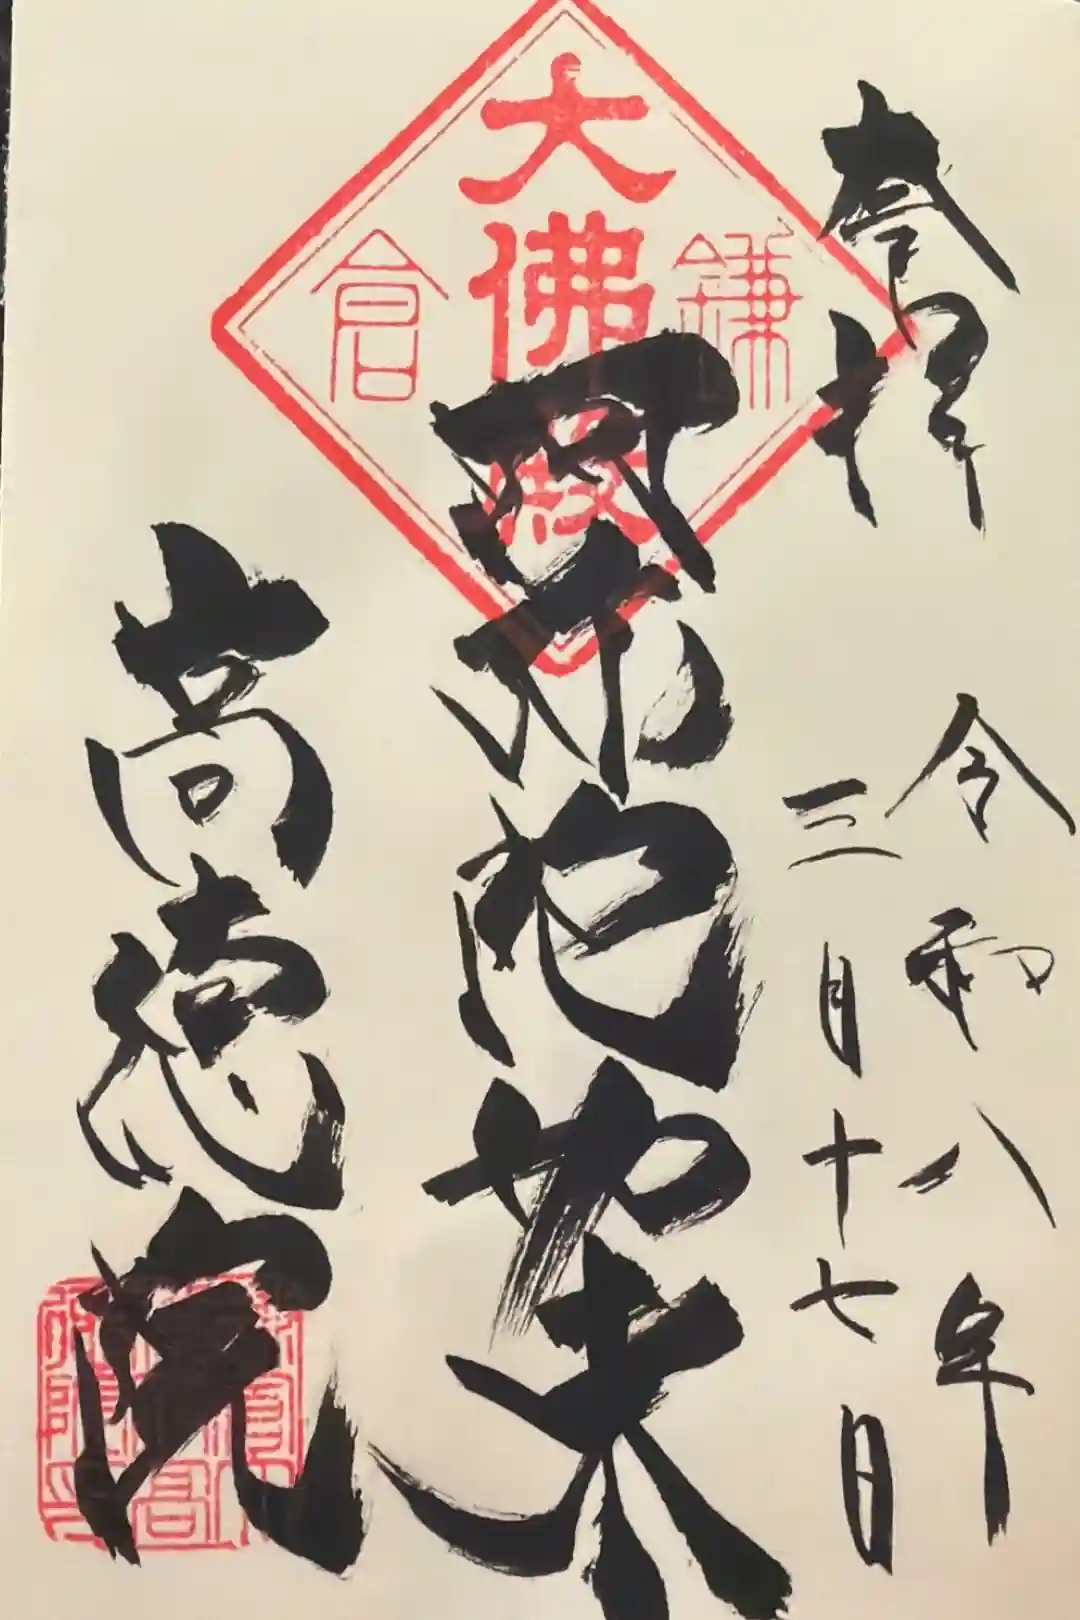 奉拝
令和八年
三月十七日
鎌倉
大佛殿
阿弥陀如来
高徳院